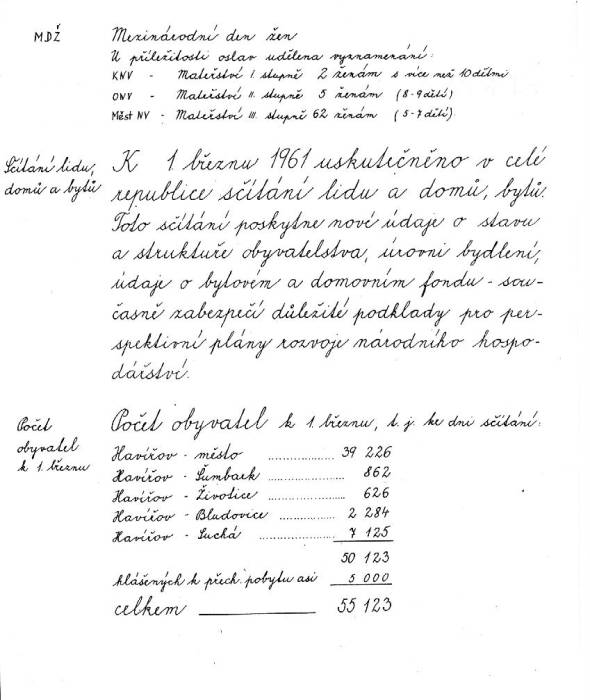 MDŽ
Mezinárodní den žen
U příležitosti oslav udělena vyznamenání:
KNV - Mateřství I. stupně 2 ženám s více než 10 dětmi
ONV - Mateřství II. stupně 5 ženám (8-9 dětí)
Měst NV - Mateřství III. stupně 62 ženám (5-7 dětí)
Sčítání lidu,
domů a bytů
K 1. březnu 1961 uskutečněno v celé
republice sčítání lidu a domů, bytů.
Toto sčítání poskytne nové údaje o stavu
a struktuře obyvatelstva, úrovni bydlení,
údaje o bytovém a domovním fondu - sou-
časně zabezpečí důležité podklady pro per-
spektivní plány rozvoje národního hospo-
dářství.
Počet
obyvatel
k 1. březnu
Počet obyvatel k 1. březnu, t. j. ke dni sčítání:
Havířov - město .................. 39 226
Havířov - Šumbark .................. 862
Havířov - Životice .................. 626
Havířov - Bludovice .................. 2 284
Havířov - Suchá .................. 7 125
50 123
hlášených k přech. pobytu asi 5 000
celkem 55 123